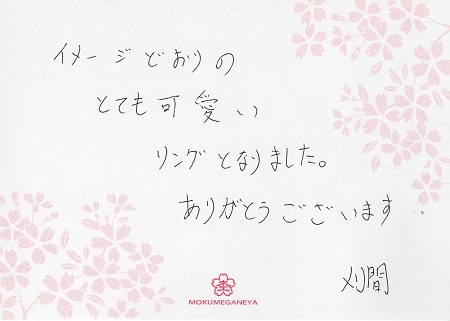 イメージどおりの
とても可愛い
リングとなりました。
ありがとうございます
刈間
MOKUMEGANEYA